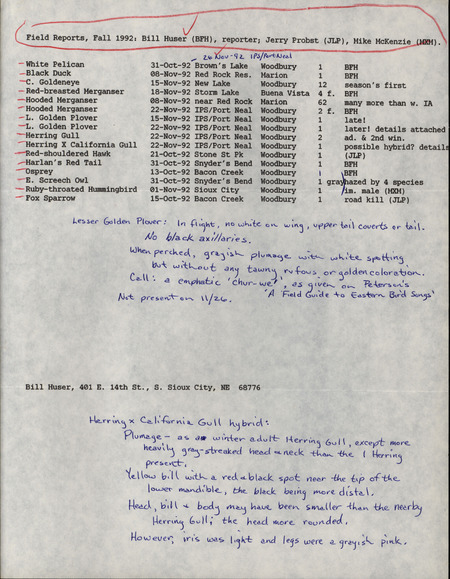 Field Reports, Fall 1992: Bill Huser (BFH), reporter; Jerry Probst (JLP), Mike McKenzie (MXM).
26 Nov-92 IPS/Port Neal
White Pelican 31-Oct-92 Brown's Lake Woodbury 1 BFH
Black Duck 08-Nov-92 Red Rock Res. Marion 1 BFH
C. Goldeneye 15-Nov-92 New Lake Woodbury 12 season's first
Red-breasted Merganser 18-Nov-92 Storm Lake Buena Vista 4 f. BFH
Hooded Merganser 08-Nov-92 near Red Rock Marion 62 many more than w. IA
Hooded Merganser 22-Nov-92 IPS/Port Neal Woodbury 2 f. BFH
L. Golden Plover 15-Nov-92 IPS/Port Neal Woodbury 1 late!
L. Golden Plover 22-Nov-92 IPS/Port Neal Woodbury 1 later! details attached
Herring Gull 22-Nov-92 IPS/Port Neal Woodbury 2 ad. & 2nd win.
Herring X California Gull 22-Nov-92 IPS/Port Neal Woodbury 1 possible hybrid? details
Red-shouldered Hawk 21-Oct-92 Stone St Pk Woodbury 1 (JLP)
Harlan's Red Tail 31-Oct-92 Snyder's Bend Woodbury 1 BFH
Osprey 13-Oct-92 Bacon Creek Woodbury 1 BFH
E. Screech Owl 31-Oct-92 Snyder's Bend Woodbury 1 gray hazed by 4 species
Ruby-throated Hummingbird 01-Nov-92 Sioux City Woodbury 1 im. male (MXM)
Fox Sparrow 15-Oct-92 Bacon Creek Woodbury 1 road kill (JLP)
Lesser Golden Plover: In flight, no white on wing, upper tail coverts or tail.
No black axillaries.
When perched, grayish plumage with white spotting
but without any tawny, rufous, or golden coloration.
Call: a emphatic 'chur-wee', as given on Peterson's
'A Field Guide to Eastern Bird Songs'
Not present on 11/26.
Bill Huser, 401 E. 14th St., S. Sioux City, NE 68776
Herring x California Gull hybrid:
Plumage - as a winter adult Herring Gull, except more
heavily gray-streaked head & neck than the 1 Herring
present.
Yellow bill with a red & black spot near the tip of the
lower mandible, the black being more distal.
Head, bill & body may have been smaller than the nearby
Herring Gull; the head more rounded.
However, iris was light and legs were a grayish pink.